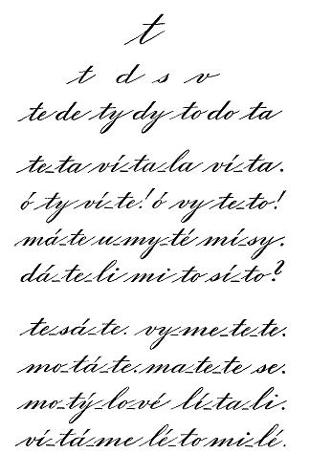 t
t d s v
te de ty dy to do ta
te-ta ví-ta-la ví-ta.
ó ty ví-te! ó vy te-to!
má-te u-my-té mí-sy.
dá-te-li mi to sí-to?
te-sá-te. vy-me-te-te.
mo-tá-te. ma-te-te se.
mo-tý-lo-vé lí-ta-li.
ví-tá-me lé-to mi-lé.